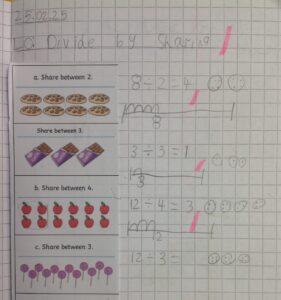 25.02.25
LO Divide by Sharing
a. Share between 2.
8 ÷ 2 = 4
8
Share between 3.
3 ÷ 3 = 1
3
b. Share between 4.
12 ÷ 4 = 3
12
c. Share between 3.
12 ÷ 3 =